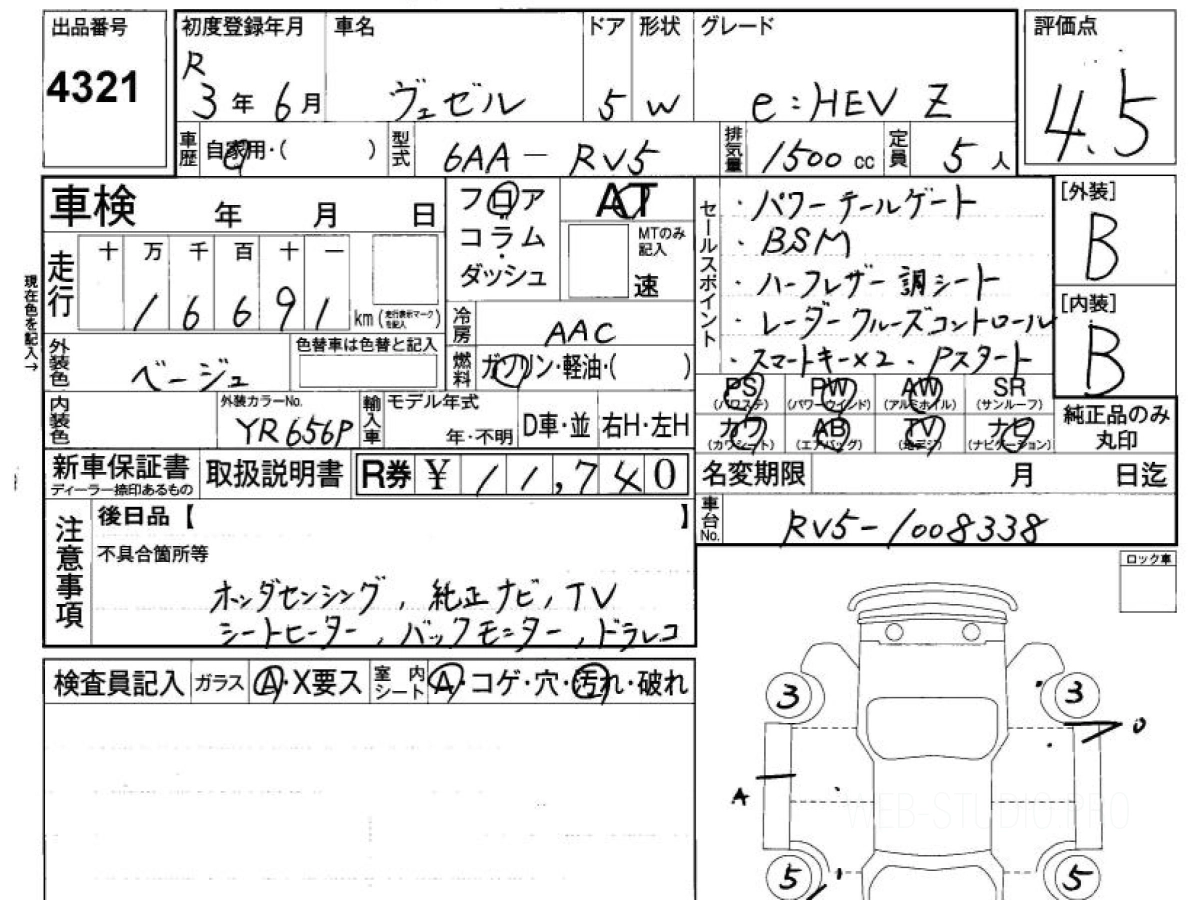 出品番号
4321
初度登録年月
R
3年6月
車名
ヴェゼル
ドア
5
形状
W
グレード
e:HEV Z
評価点
4.5
車歴
自家用・( )
型式
6AA-RV5
排気量
1500 cc
定員
5人
車検 年 月 日
フロア
コラム
ダッシュ
AT
MTのみ
記入
速
セールスポイント
・パワーテールゲート
・BSM
・ハーフレザー調シート
・レーダークルーズコントロール
・スマートキー×2 ・Pスタート
[外装]
B
[内装]
B
現在色を記入→
走行
十 万 千 百 十 一
1 6 6 9 1
km(走行表示マークを記入)
冷房
AAC
燃料
ガソリン・軽油・( )
外装色
ベージュ
色替車は色替と記入
内装色
外装カラーNo.
YR656P
輸入車
モデル年式
年・不明
D車・並
右H・左H
PS
(パワステ)
PW
(パワーウインド)
AW
(アルミホイル)
SR
(サンルーフ)
カワ
(カワシート)
AB
(エアバッグ)
TV
(地デジ)
ナビ
(ナビゲーション)
純正品のみ
丸印
新車保証書
ディーラー捺印あるもの
取扱説明書
R券 ¥ 11,740
名変期限 月 日迄
車台No.
RV5-1008338
注意事項
後日品【 】
不具合箇所等
ホンダセンシング, 純正ナビ, TV
シートヒーター, バックモニター, ドラレコ
ロック車
検査員記入
ガラス
A・X要ス
室内
シート
A・コゲ・穴・汚れ・破れ
3
3
A
5
5
WEB-STUDIO.PRO